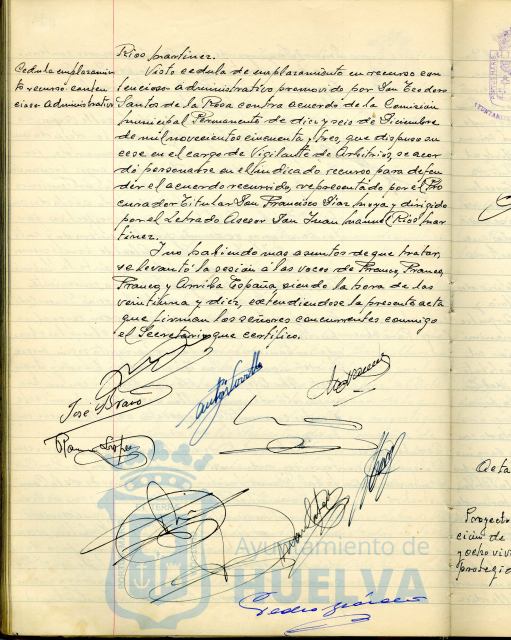 Rios Martinez.
Cedula emplazamien
to recurso conten
cioso administrativo
Visto cedula de emplazamiento en recurso con
tencioso administrativo promovido por Don Teodoro
Santos de la Rosa contra acuerdo de la Comisión
Municipal Permanente de diez y seis de Diciembre
de mil novecientos cincuenta y tres, que dispuso su
cese en el cargo de Vigilante de Arbitrios, se acor
dó personarse en el indicado recurso para defen
der el acuerdo recurrido, representado por el Pro
curador Titular Don Francisco Diaz Moya y dirigido
por el Letrado Asesor Don Juan Manuel Rios Mar
tinez.
Y no habiendo mas asuntos de que tratar,
se levantó la sesión á las voces de Franco, Franco,
Franco y Arriba España, siendo la hora de las
veintiuna y diez, extendiendose la presente acta
que firman los señores concurrentes conmigo
el Secretario que certifico.
José Bravo
Ayuntamiento de
HUELVA
Acta
Proyecto
ción de
y ocho vivi
protegid